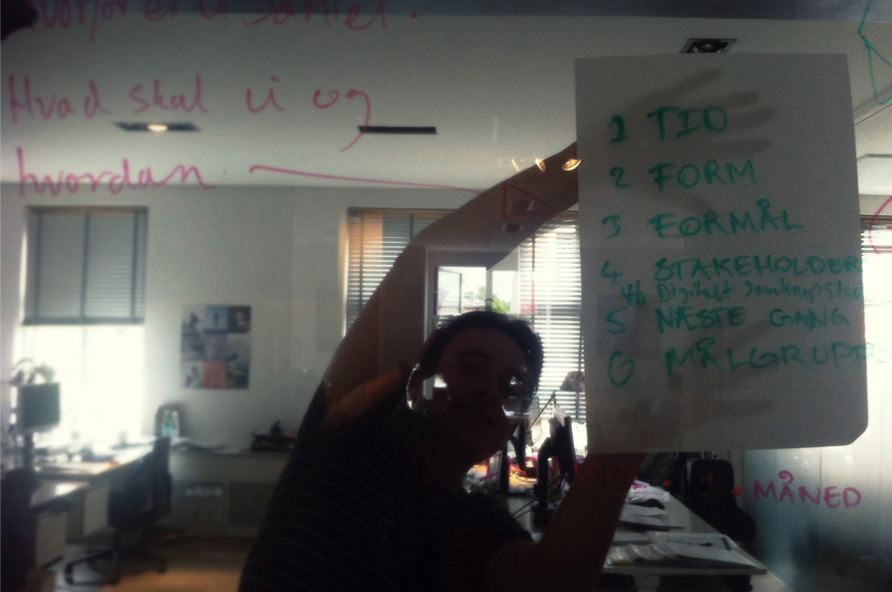 Hvorfor er vi samlet.
Hvad skal vi og
hvordan
1 TID
2 FORM
3 FORMÅL
4 STAKEHOLDER
4b Digitalt
5 NÆSTE GANG
6 MÅLGRUPPE
1 MÅNED